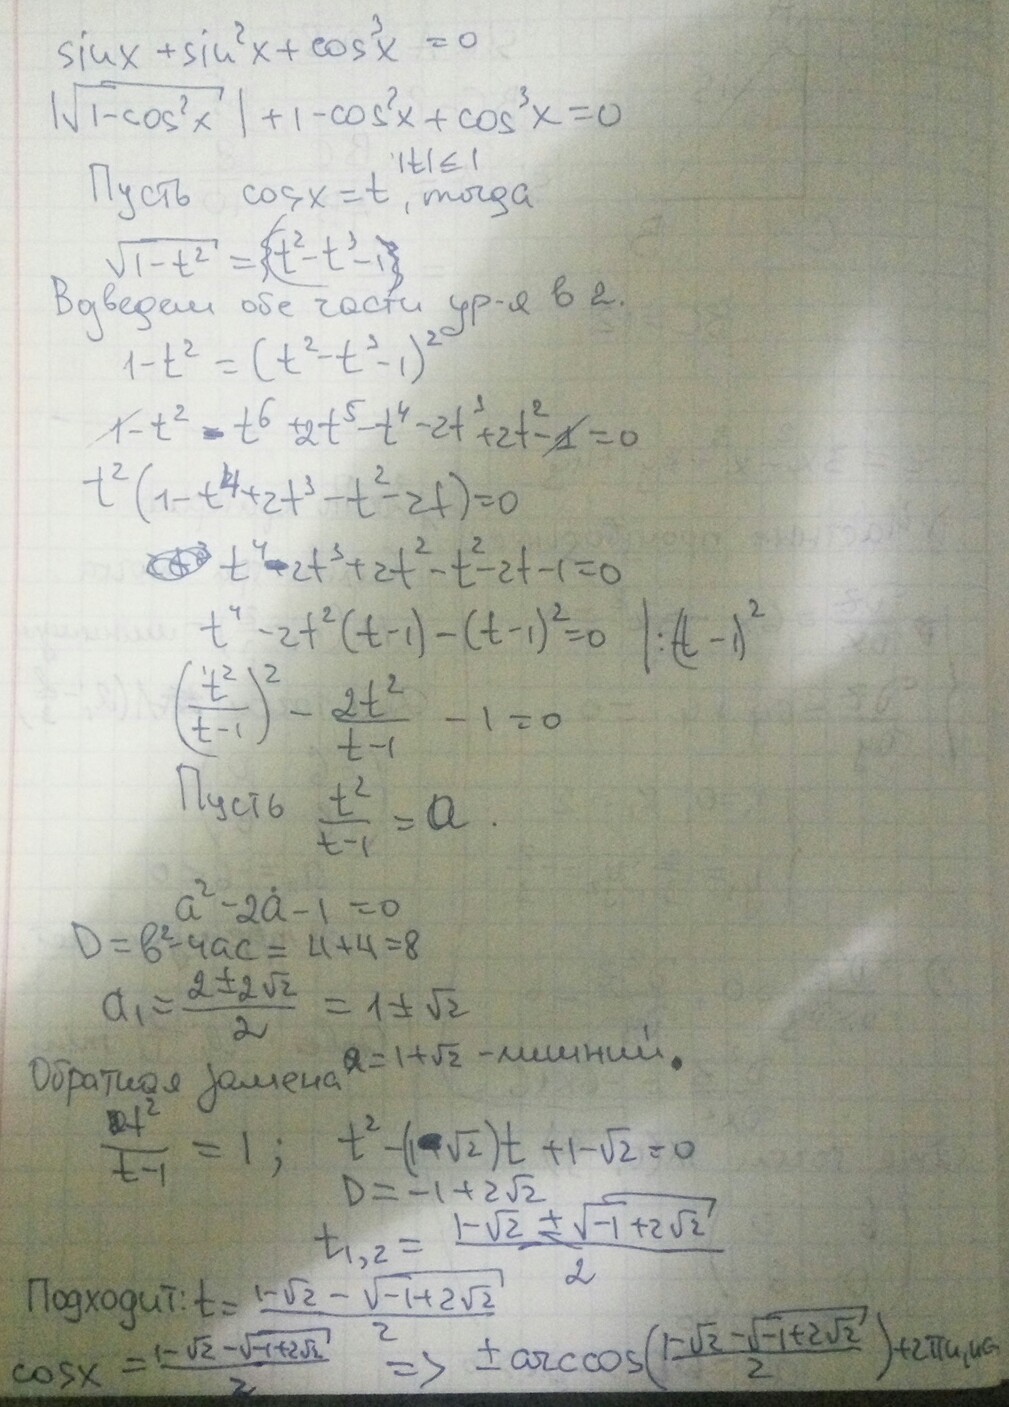 sinx + sin²x + cos³x = 0
|√(1-cos²x)| + 1 - cos²x + cos³x = 0
Пусть cosx = t, |t| ≤ 1 тогда
√(1-t²) = {t² - t³ - 1}
Возведем обе части ур-я в 2.
1 - t² = (t² - t³ - 1)²
1 - t² - t⁶ + 2t⁵ - t⁴ - 2t³ + 2t² - 1 = 0
t²(1 - t⁴ + 2t³ - t² - 2t) = 0
t⁴ - 2t³ + 2t² - t² - 2t - 1 = 0
t⁴ - 2t²(t-1) - (t-1)² = 0 |:(t-1)²
(t²/(t-1))² - 2t²/(t-1) - 1 = 0
Пусть t²/(t-1) = a.
a² - 2a - 1 = 0
D = b² - 4ac = 4 + 4 = 8
a₁ = (2±2√2)/2 = 1 ± √2
Обратная замена a = 1+√2 - лишний.
t²/(t-1) = 1; t² - (1-√2)t + 1 - √2 = 0
D = -1 + 2√2
t₁,₂ = (1-√2 ± √(-1+2√2))/2
Подходит: t = (1-√2 - √(-1+2√2))/2
cosx = (1-√2 - √(-1+2√2))/2 => ± arccos((1-√2 - √(-1+2√2))/2) + 2πn,